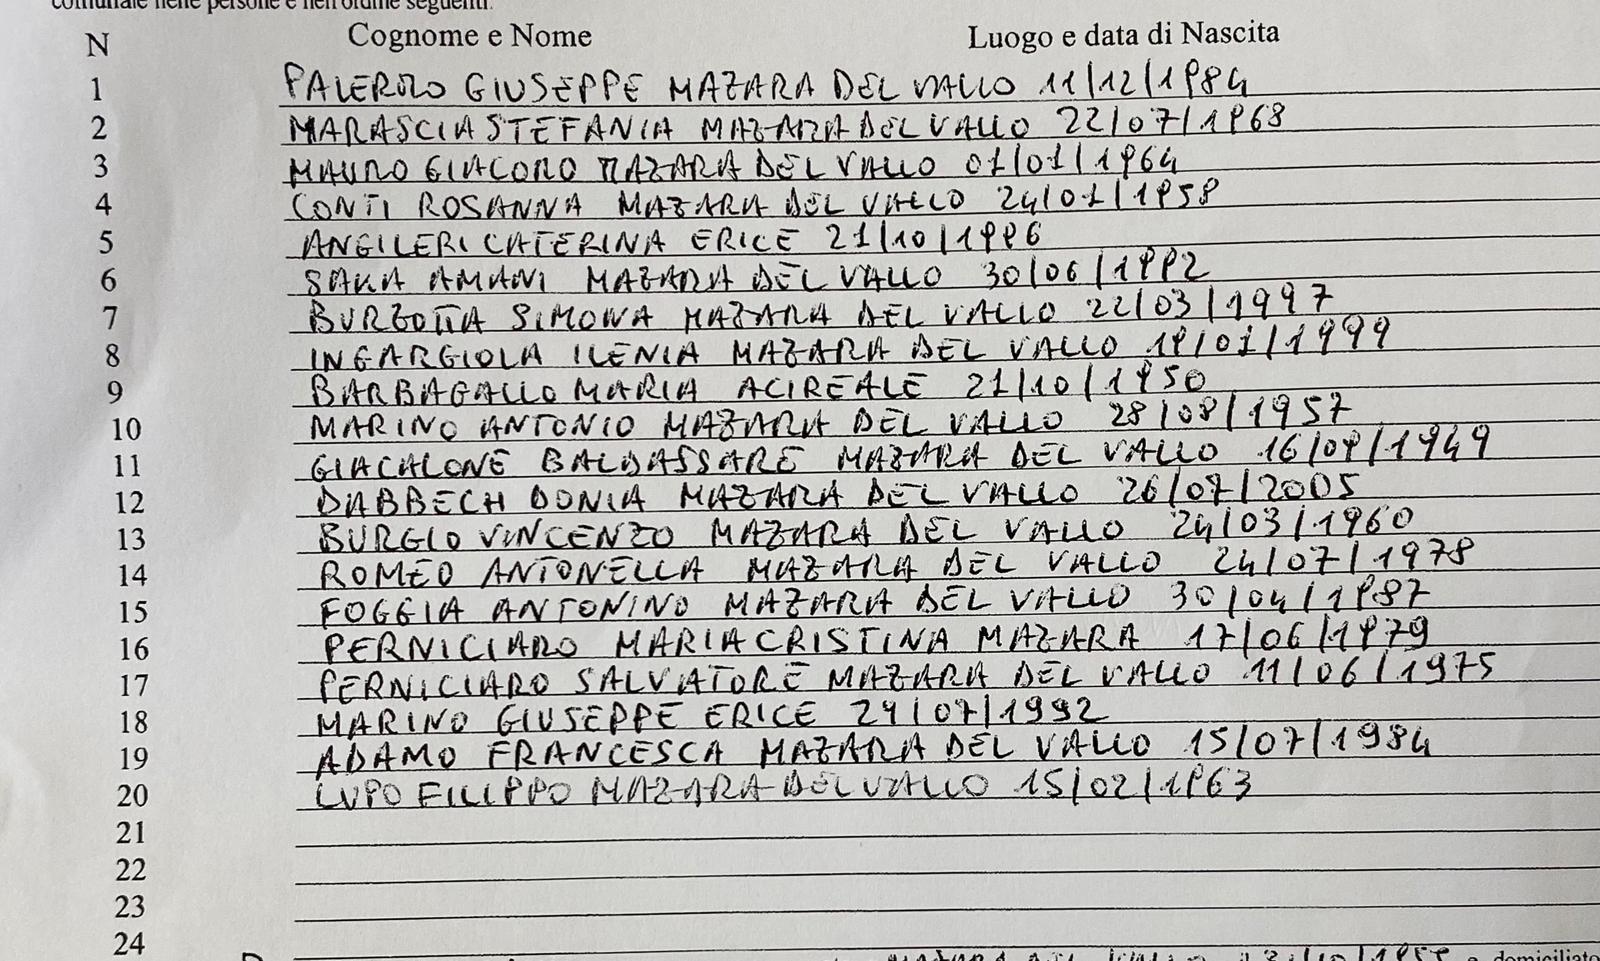 comunale nelle persone e nell'ordine seguenti:
N Cognome e Nome Luogo e data di Nascita
1 PALERMO GIUSEPPE MAZARA DEL VALLO 11/12/1984
2 MARASCIA STEFANIA MAZARA DEL VALLO 22/07/1968
3 MAURO GIACOMO MAZARA DEL VALLO 01/01/1964
4 CONTI ROSANNA MAZARA DEL VALLO 24/01/1958
5 ANGILERI CATERINA ERICE 21/10/1996
6 SAKA AMANI MAZARA DEL VALLO 30/06/1992
7 BURZOTTA SIMONA MAZARA DEL VALLO 22/03/1997
8 INGARGIOLA ILENIA MAZARA DEL VALLO 19/01/1999
9 BARBAGALLO MARIA ACIREALE 21/10/1950
10 MARINO ANTONIO MAZARA DEL VALLO 28/08/1957
11 GIACALONE BALDASSARE MAZARA DEL VALLO 16/09/1949
12 DABBECH DONIA MAZARA DEL VALLO 26/07/2005
13 BURGIO VINCENZO MAZARA DEL VALLO 24/03/1960
14 ROMEO ANTONELLA MAZARA DEL VALLO 24/07/1978
15 FOGGIA ANTONINO MAZARA DEL VALLO 30/04/1987
16 PERNICIARO MARIA CRISTINA MAZARA 17/06/1979
17 PERNICIARO SALVATORE MAZARA DEL VALLO 11/06/1975
18 MARINO GIUSEPPE ERICE 29/07/1992
19 ADAMO FRANCESCA MAZARA DEL VALLO 15/07/1984
20 LUPO FILIPPO MAZARA DEL VALLO 15/02/1963
21
22
23
24
e domiciliato